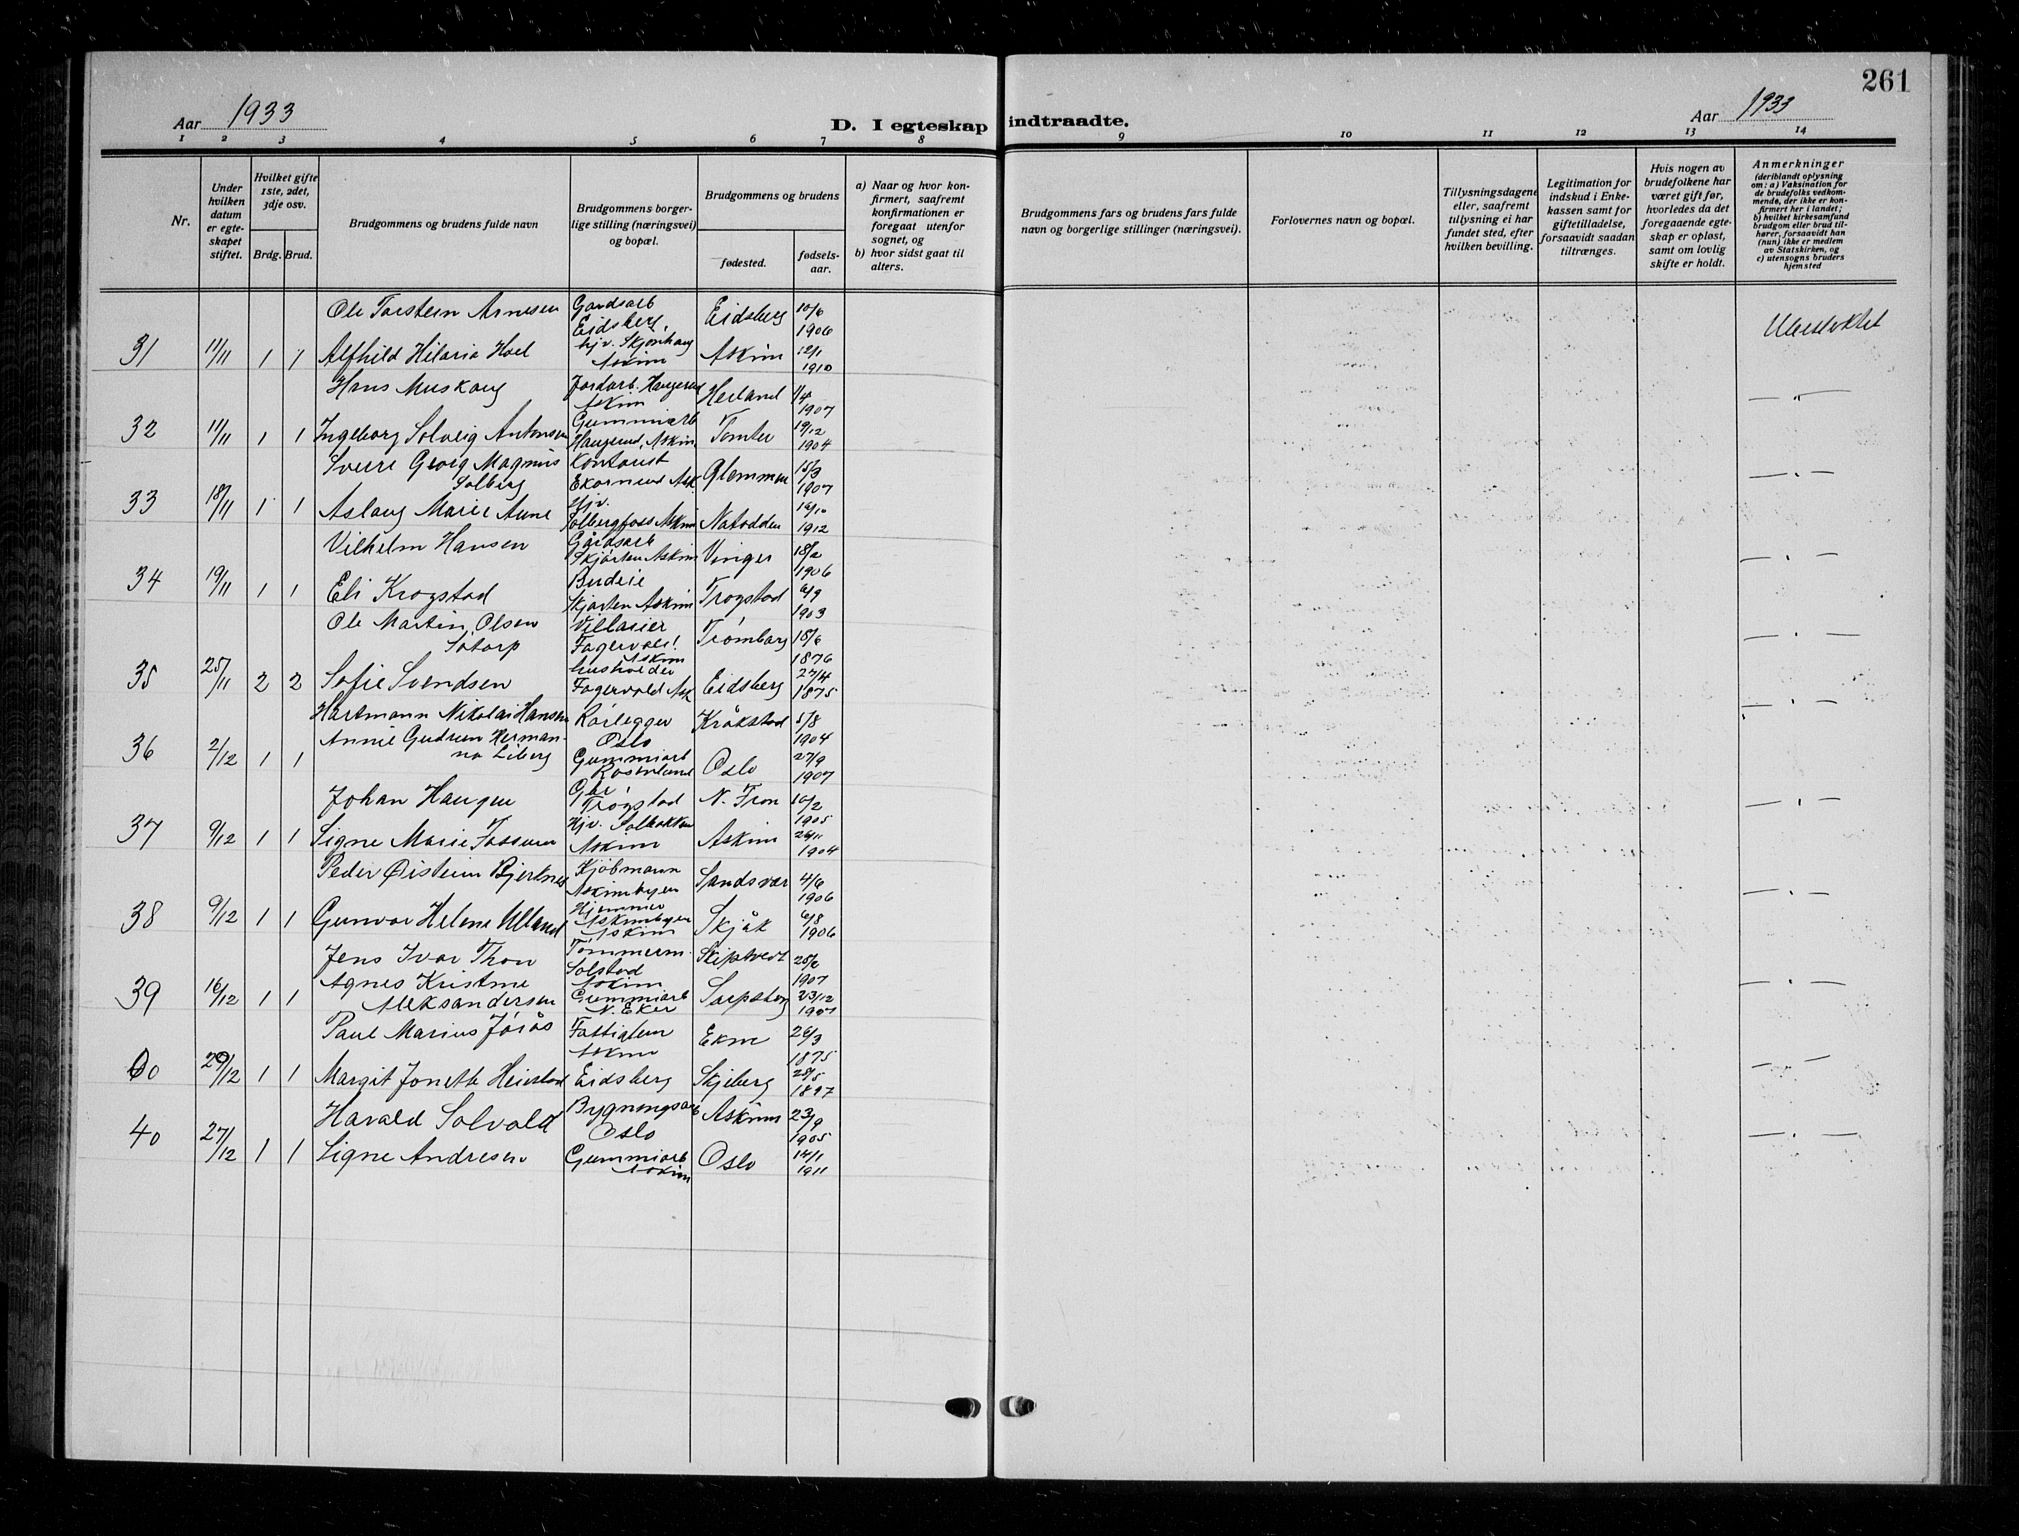 261
Aar 1933
D. I egteskap indtraadte.
Aar 1933
1 2 3 4 5 6 7 8 9 10 11 12 13 14
Nr.
Under hvilken datum er egteskapet stiftet.
Hvilket gifte 1ste, 2det, 3dje osv.
Brdg. Brud.
Brudgommens og brudens fulde navn
Brudgommens borgerlige stilling (næringsvei) og bopæl.
Brudgommens og brudens
fødested.
fødselsaar.
a) Naar og hvor konfirmert, saafremt konfirmationen er foregaat utenfor sognet, og
b) hvor sidst gaat til alters.
Brudgommens fars og brudens fars fulde navn og borgerlige stillinger (næringsvei).
Forlovernes navn og bopæl.
Tillysningsdagene eller, saafremt tillysning ei har fundet sted, efter hvilken bevilling.
Legitimation for indskud i Enkekassen samt for giftetilladelse, forsaavidt saadan tiltrænges.
Hvis nogen av brudefolkene har været gift før, hvorledes da det foregaaende egteskap er opløst, samt om lovlig skifte er holdt.
Anmerkninger (deriblandt oplysning om: a) Vaksination for de brudefolks vedkommende, der ikke er konfirmert her i landet; b) hvilket kirkesamfund brudgom eller brud tilhører, forsaavidt han (hun) ikke er medlem av Statskirken, og c) utensogns bruders hjemsted
Ole Torstein Arnesen Gardsarb Eidsberg, Eidsberg 10/6 1906
31 11/11 1 1 Alfhild Hilaria Hoel hjv. Skjønhaug Askim Askim 12/1 1910
Hans Muskaug Jordarb. Haugerud Askim Herland 1/4 1907 — " —
32 11/11 1 1 Ingeborg Solveig Antonsen Gummiarb Haugerud, Askim Tomter 19/12 1904
Sverre Georg Magnus Solberg Kontorist Ekornrud Ask. Glemmen 15/3 1907 — " —
33 18/11 1 1 Aslaug Marie Aune Hjv. Solbergfoss Askim Notodden 16/10 1912
Vilhelm Hansen Gårdsarb Skjørten Askim Vinger 18/2 1906 — " —
34 19/11 1 1 Eli Krogstad Budeie Skjørten Askim Trøgstad 6/9 1903
Ole Martin Olsen Sotorp Villaeier Fagervold! Askim Trømborg 18/6 1876 — " —
35 25/11 2 2 Sofie Svendsen husholder Fagervold Ask Eidsberg 27/4 1875
Hartmann Nikolai Hansen Rørlegger Oslo Kråkstad 5/8 1904 — " —
36 2/12 1 1 Annie Gudrun Hermanna Liberg Gummiarb Rosenlund Oslo 27/9 1907
Johan Haugen Gbr Trøgstad N. Fron 10/2 1905 — " —
37 9/12 1 1 Signe Marie Fossum Hjv. Solbakken Askim Askim 26/11 1904
Peder Øistein Bjerknes Kjøbmann Askimbyen Sandsvær 4/6 1906 — " —
38 9/12 1 1 Gunvor Helene Ulland Hjemmev Askimbyen Askim Skjåk 6/8 1906
Jens Ivar Thon Tømmerm. Solstad Askim Skiptvedt 25/2 1907 — " —
39 16/12 1 1 Agnes Kristine Aleksandersen Gummiarb N. Eker Sarpsborg 23/12 1907
Paul Marius Jørås Fattiglem Askim 26/3 1875 — " —
29/12 1 1 Margit Jonette Heierstad Eidsberg Skjeberg 28/5 1897
Harald Solvold Bygningsarb Oslo Askim 23/9 1905 — " —
40 27/12 1 1 Signe Andresen Gummiarb Askim Oslo 14/1 1911